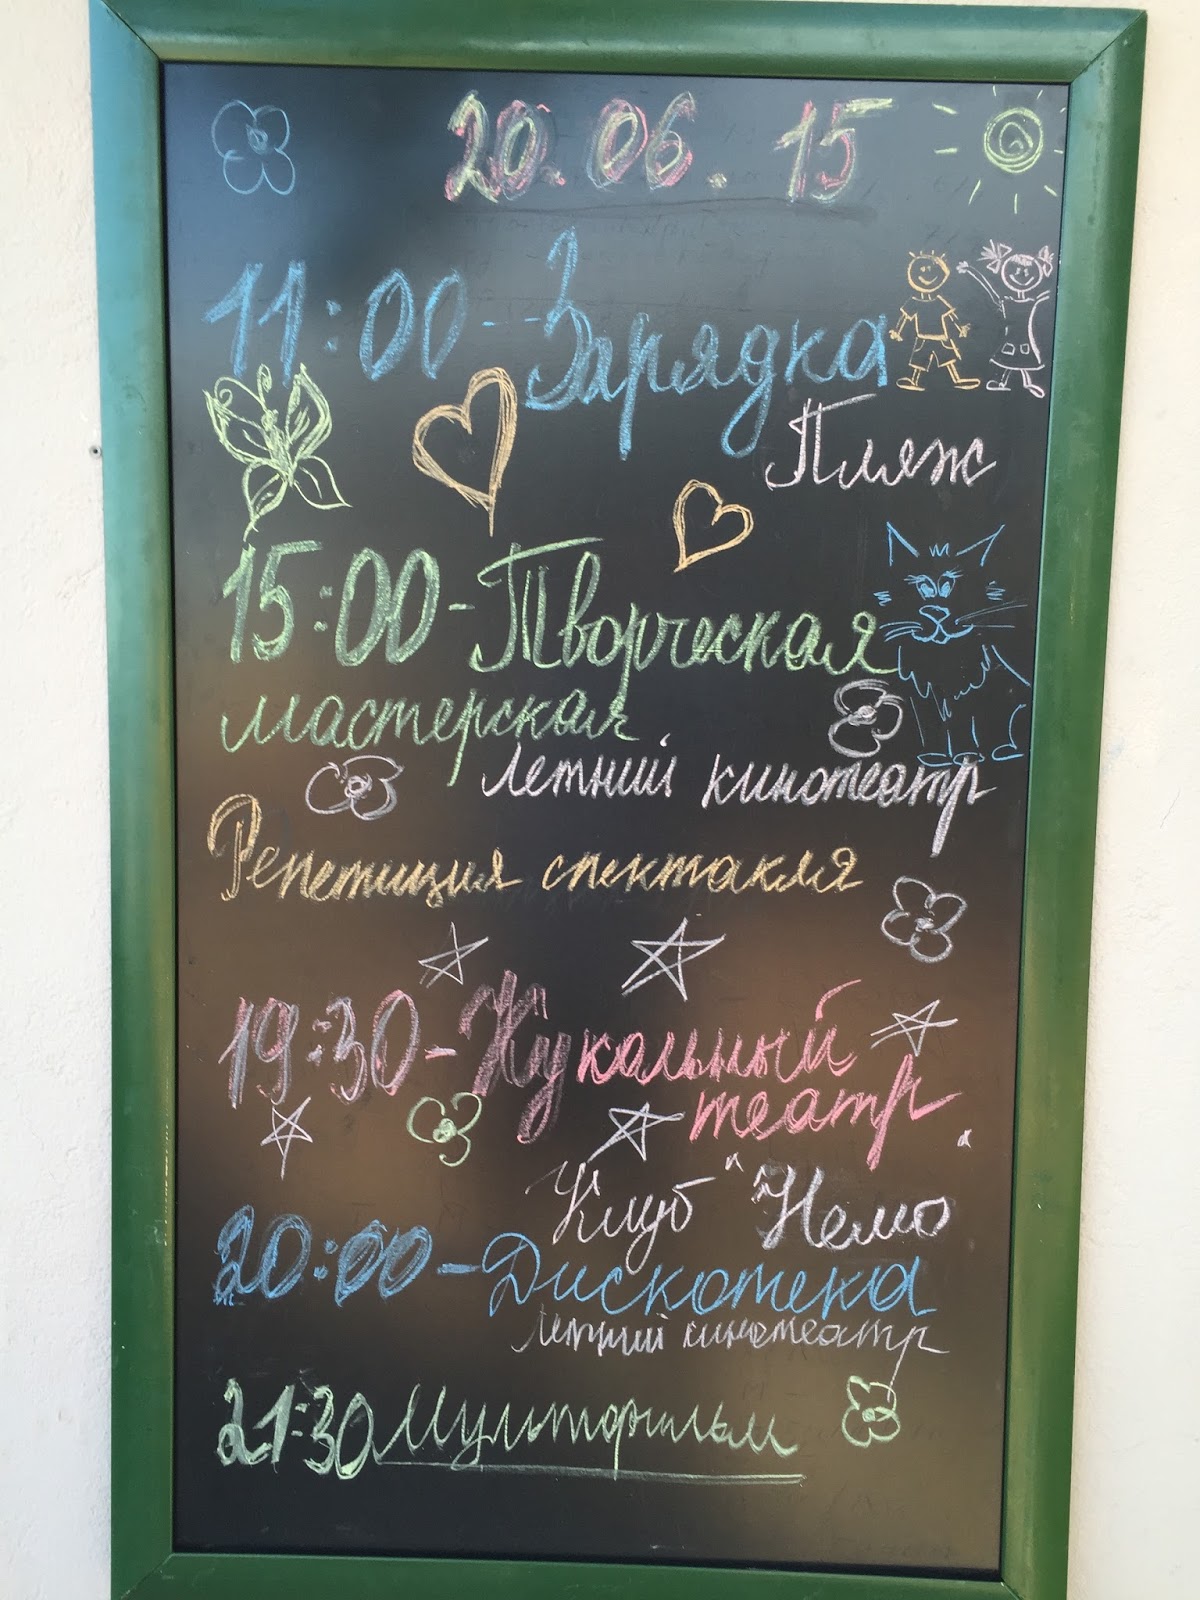 20.06.15
11:00 - Зарядка
Пляж
15:00 - Творческая
мастерская
летний кинотеатр
Репетиция спектакля
19:30 - "Кукольный
театр"
Клуб "Немо"
20:00 - Дискотека
летний кинотеатр
21:30 Мультфильм